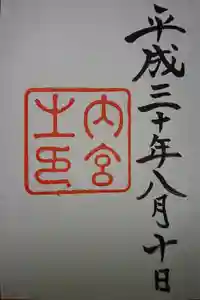 平成三十年八月十日
内宮
之印